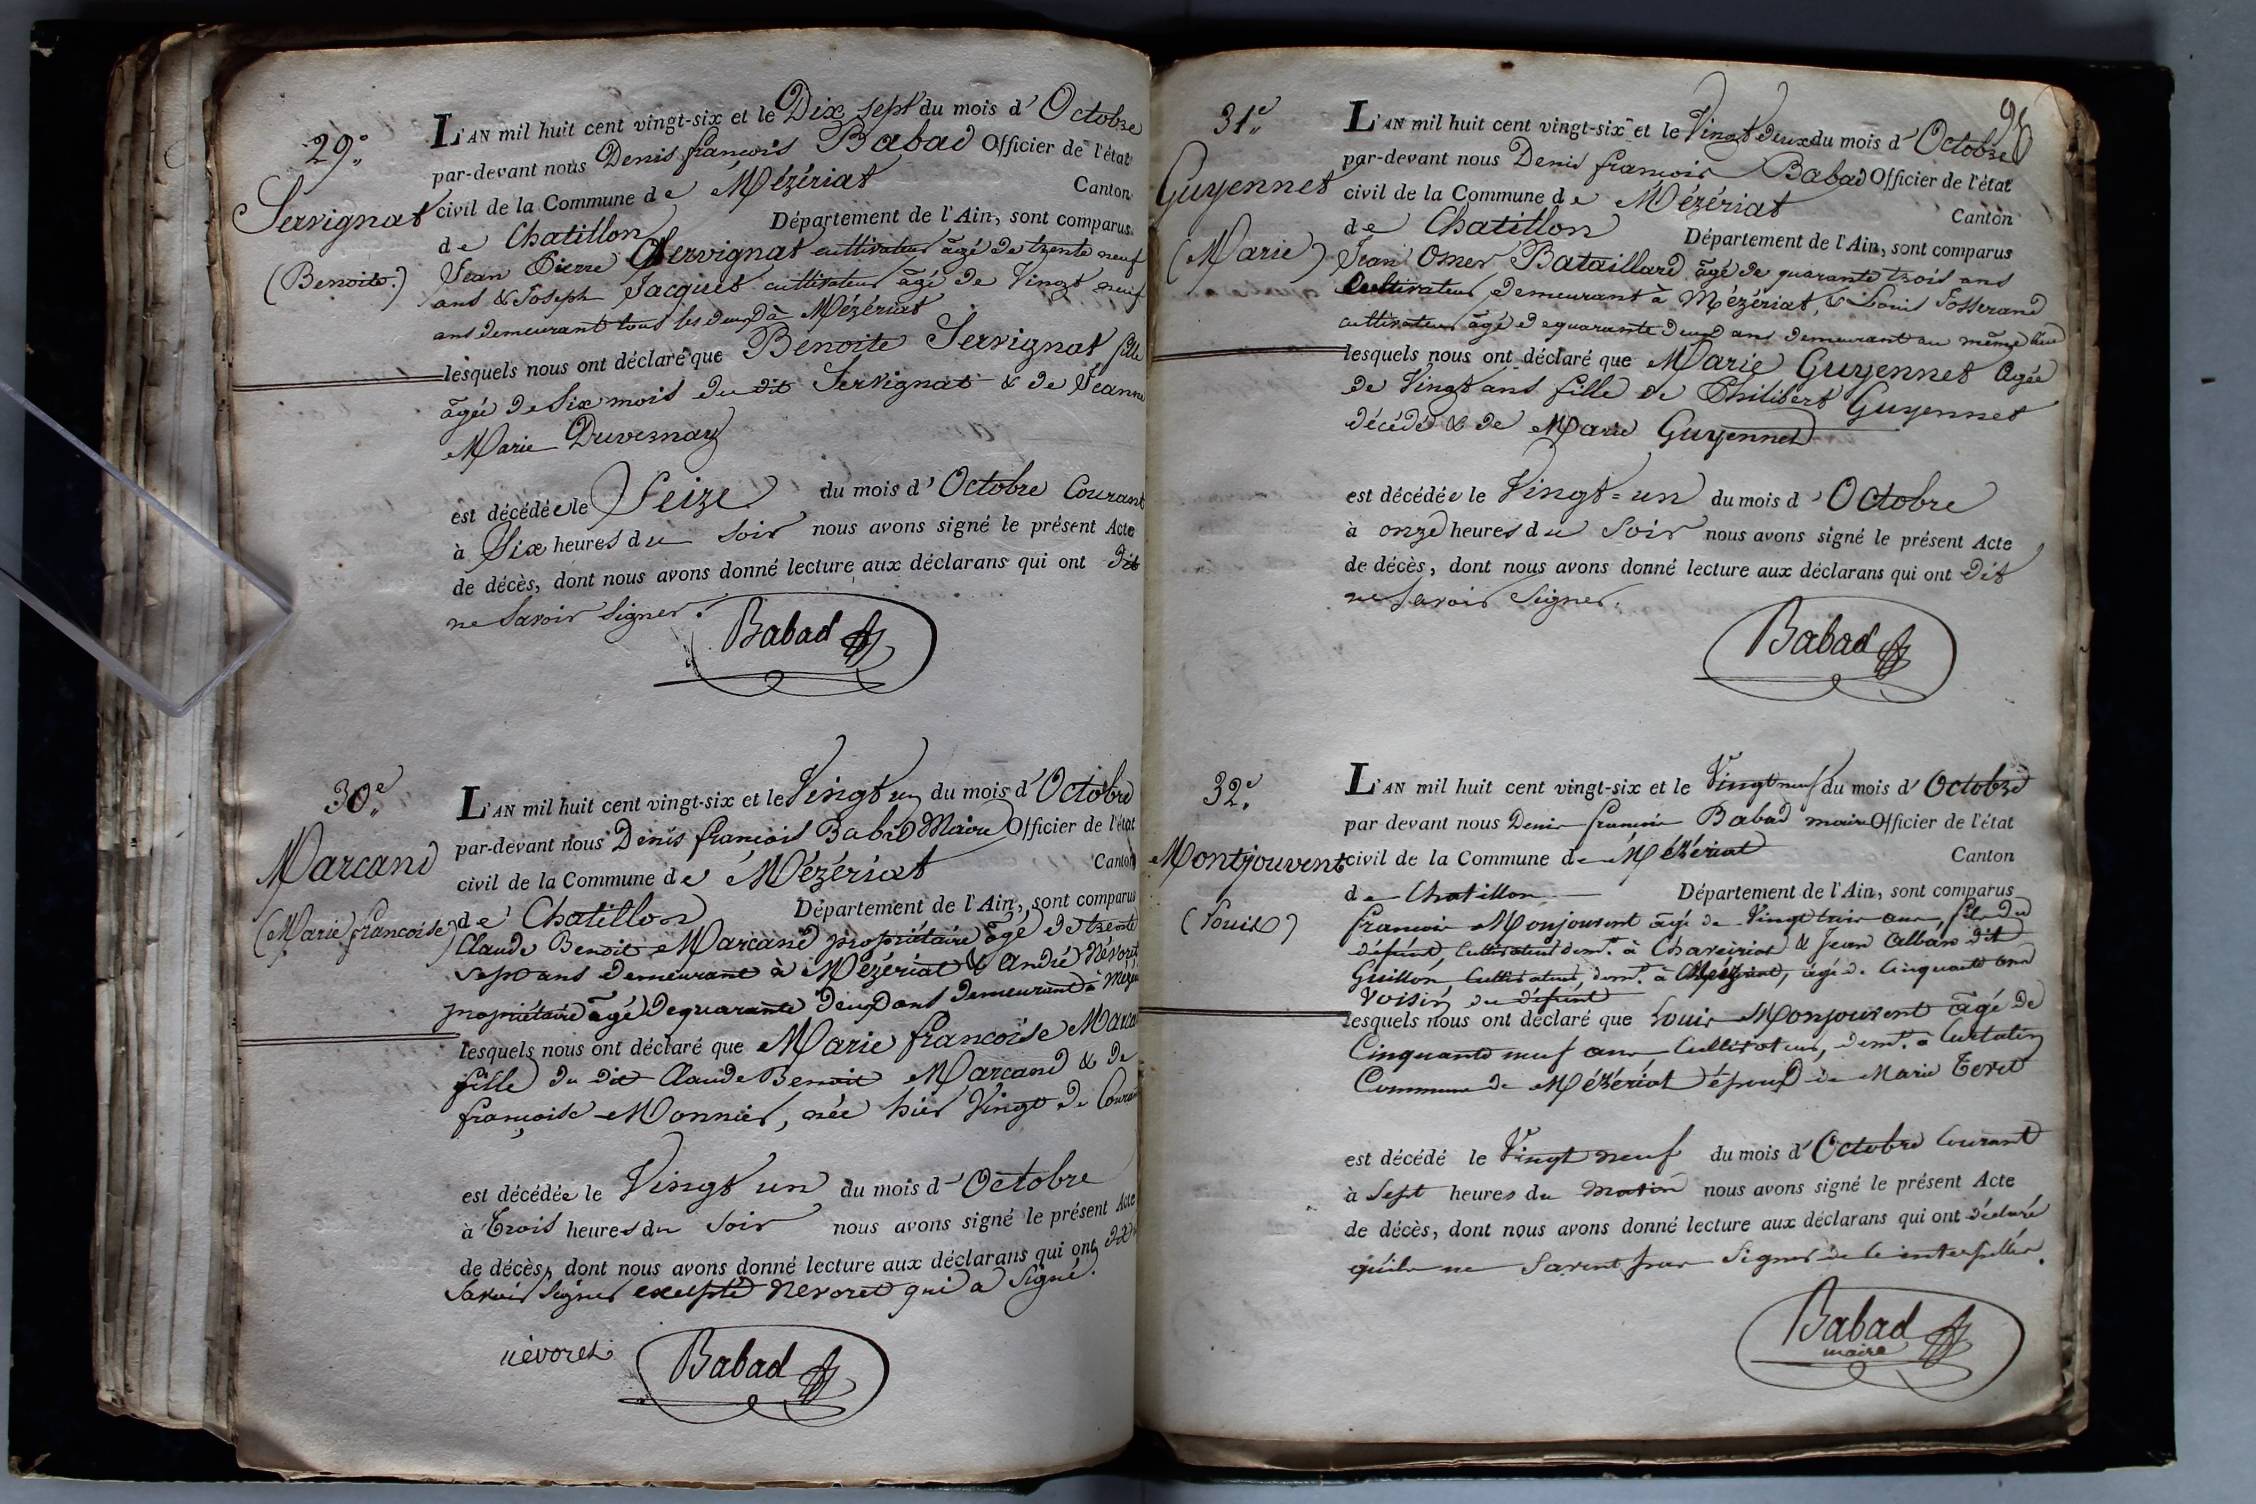 29.e
Servignat
(Benoite.)
L'AN mil huit cent vingt-six et le Dix sept du mois d'Octobre
par-devant nous Denis françois Babad Officier de l'état
civil de la Commune de Mézériat Canton
de Chatillon Département de l'Ain, sont comparus
Jean Pierre Servignat cultivateur âgé de trente neuf
ans & Joseph Jacquet cultivateur âgé de Vingt neuf
ans demeurant tous les deux à Mézériat
lesquels nous ont déclaré que Benoite Servignat fille
âgée de Six mois du dit Servignat & de Jeanne
Marie Duvernay
est décédée le Seize du mois d'Octobre Courant
à Six heures du soir nous avons signé le présent Acte
de décès, dont nous avons donné lecture aux déclarans qui ont dit
ne Savoir Signer.
Babad
30.e
Marcand
(Marie francoise)
L'AN mil huit cent vingt-six et le Vingt un du mois d'Octobre
par-devant nous Denis françois Babad Maire Officier de l'état
civil de la Commune de Mézériat Canton
de Chatillon Département de l'Ain, sont comparus
Claude Benoit Marcand propriétaire âgé de trente
sept ans demeurant à Mézériat & André Névoret
propriétaire âgé de quarante deux ans demeurant à Mézé
lesquels nous ont déclaré que Marie françoise Marca
fille du dit Claude Benoit Marcand & de
françoise Monnier, née hier Vingt du Couran
est décédée le Vingt un du mois d'Octobre
à Trois heures du Soir nous avons signé le présent Acte
de décès, dont nous avons donné lecture aux déclarans qui ont dit ne
Savoir Signer excepté Nevoret qui a Signé.
nèvoret Babad
95
31.e
Guyennet
(Marie)
L'AN mil huit cent vingt-six et le Vingt deux du mois d'Octobre
par-devant nous Denis francois Babad Officier de l'état
civil de la Commune de Mézériat Canton
de Chatillon Département de l'Ain, sont comparus
Jean Omer Bataillard âgé de quarante trois ans
Cultivateur demeurant à Mézériat, & Louis Josserand
cultivateur âgé de quarante deux ans demeurant au même lieu
lesquels nous ont déclaré que Marie Guyennet Agée
de Vingt ans fille de Philibert Guyennet
décédé & de Marie Guyennet
est décédée le Vingt=un du mois d'Octobre
à onze heures du Soir nous avons signé le présent Acte
de décès, dont nous avons donné lecture aux déclarans qui ont dit
ne Savoir Signer.
Babad
32.e
Montjouvent
(Louis)
L'AN mil huit cent vingt-six et le Vingt neuf du mois d'Octobre
par devant nous Denis francois Babad maire Officier de l'état
civil de la Commune de Mézériat Canton
de Chatillon Département de l'Ain, sont comparus
francois Monjouvent âgé de Vingt trois ans, fils du
défunt, Cultivateur dem.t à Chaveiriat & Jean Alban dit
Guillon Cultivateur, dem.t à Mézériat, âgé de Cinquante ans
Voisin du défunt
lesquels nous ont déclaré que Louis Monjouvent âgé de
Cinquante neuf ans Cultivateur, dem.t à Curtatin
Commune de Mézériat époux de Marie Teret
est décédé le Vingt neuf du mois d'Octobre Courant
à Sept heures du matin nous avons signé le présent Acte
de décès, dont nous avons donné lecture aux déclarans qui ont déclaré
qu'ils ne Savent pas Signer de ce interpellés.
Babad
maire